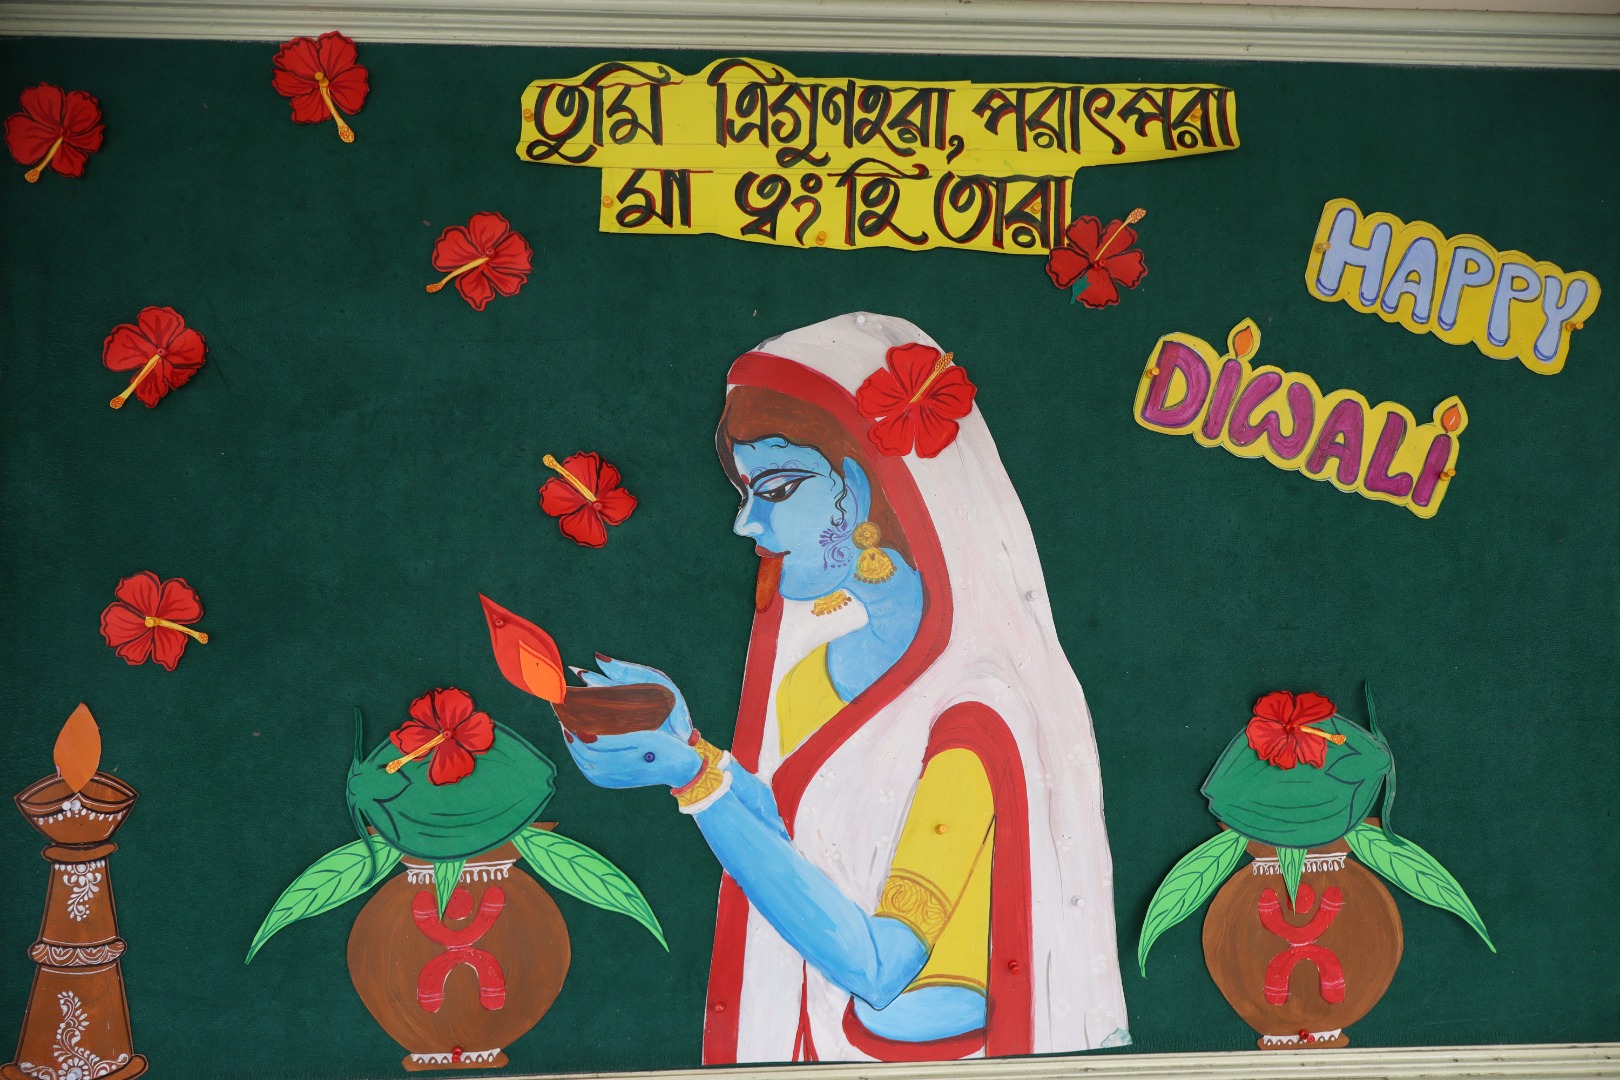 তুমি ত্রিগুণহরা, পরাৎপরা
মা ত্বং হি তারা
HAPPY
DIWALI